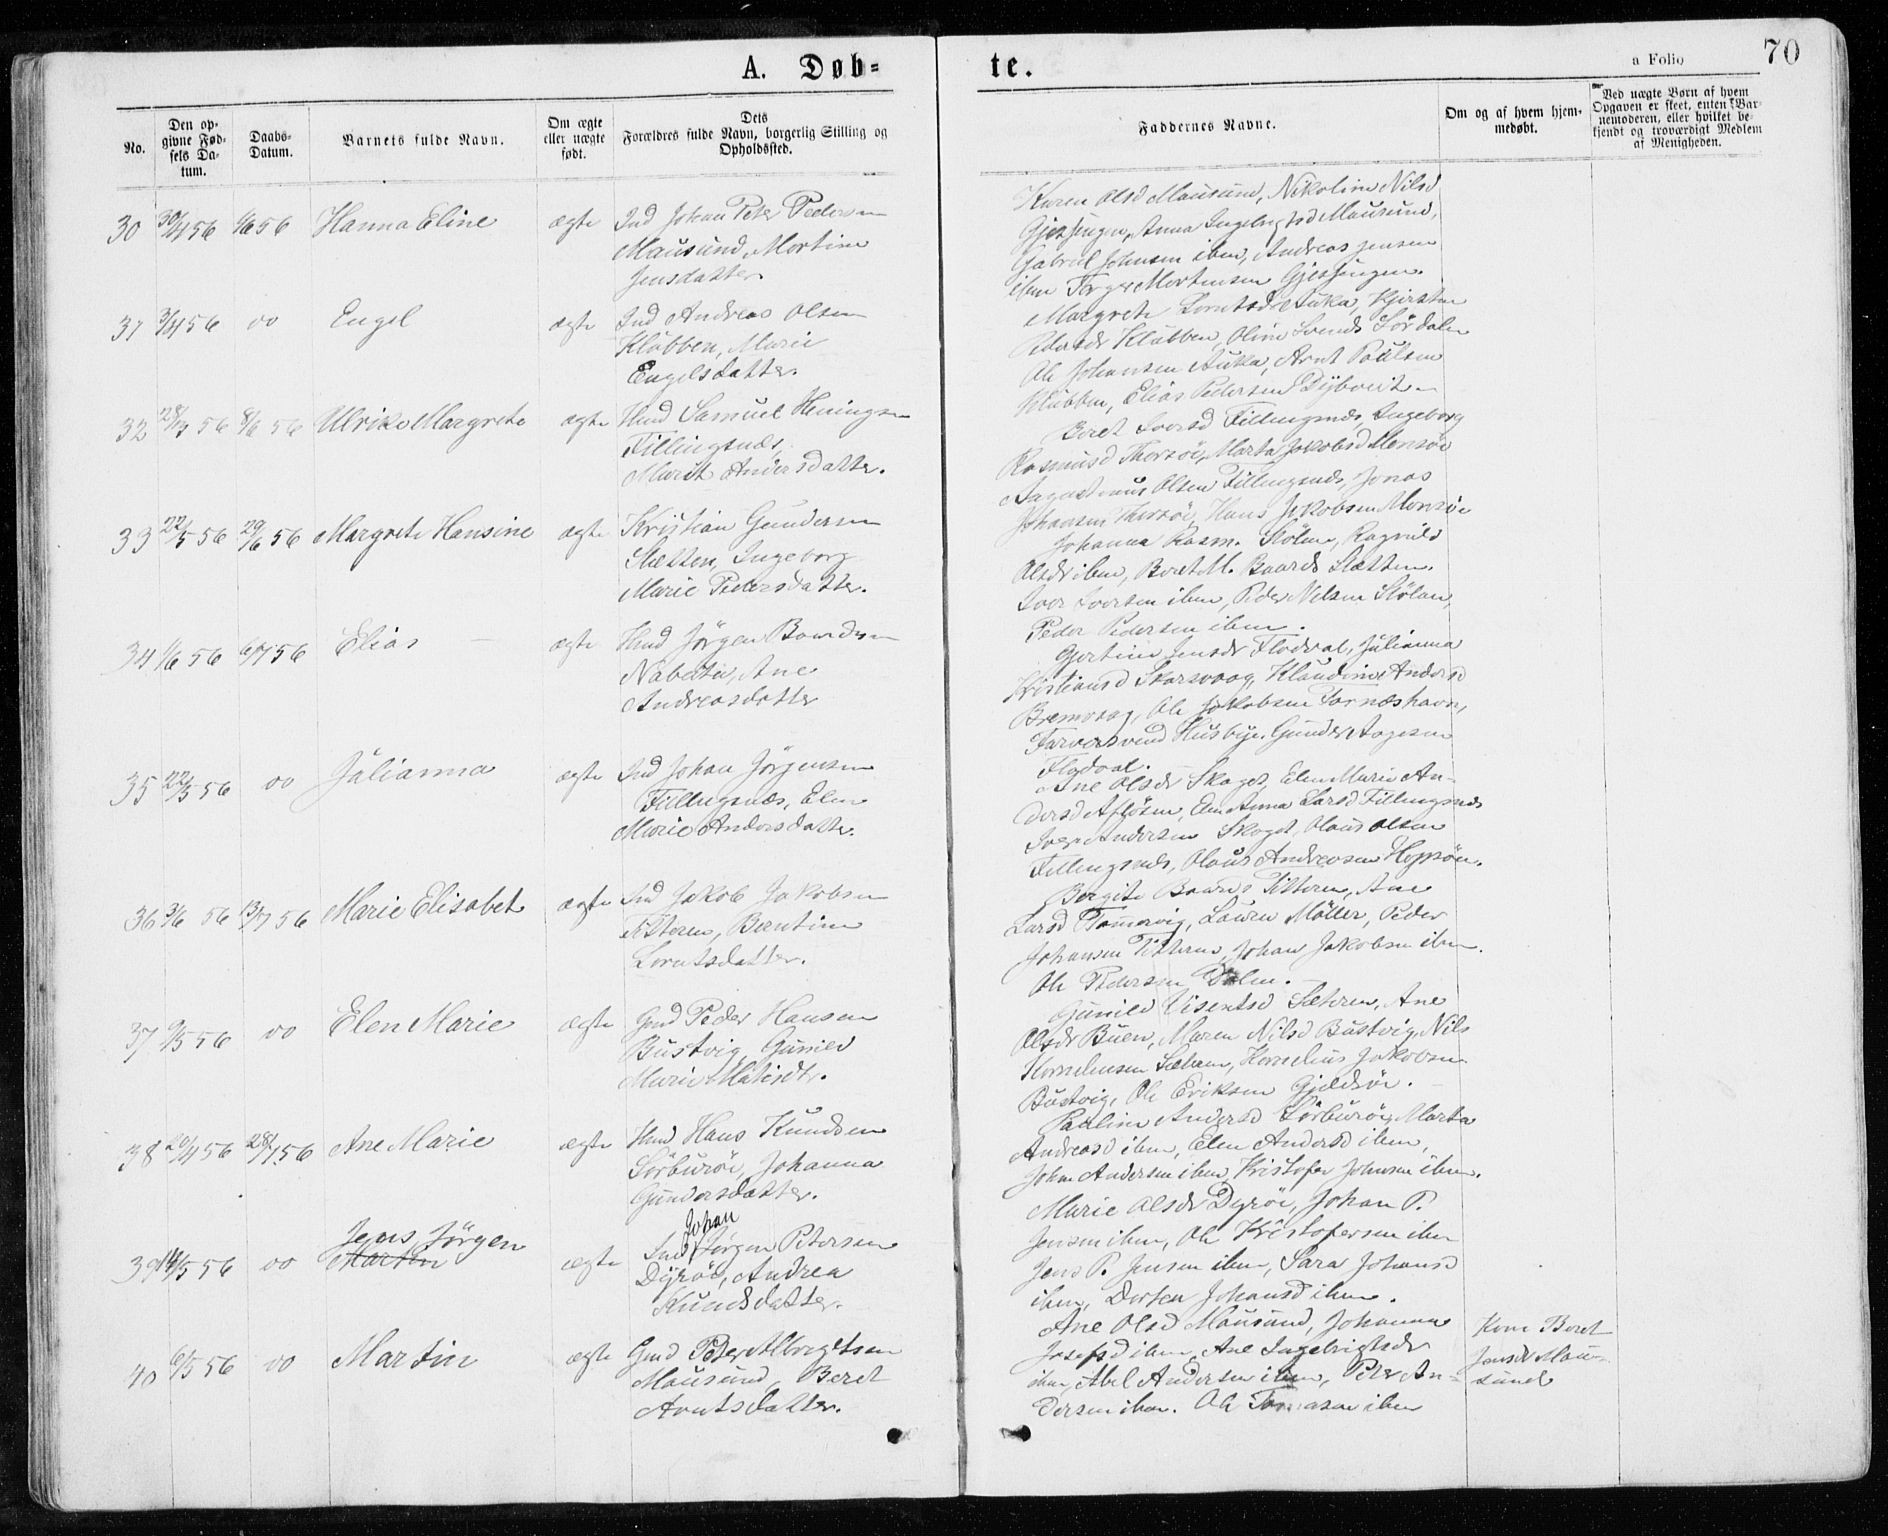 A. Døb=
te.
a Folio
70
No.
Den op-
givne Fød-
sels Da-
tum.
Daabs-
Datum.
Barnets fulde Navn.
Om ægte
eller uægte
født.
Dets
Forældres fulde Navn, borgerlig Stilling og
Opholdssted.
Faddernes Navne.
Om og af hvem hjem-
medøbt.
Ved uægte Børn af hvem
Opgaven er skeet, enten Bar-
nemoderen, eller hvilket be-
kjendt og troværdigt Medlem
af Menigheden.
30 30/4 56 1/6 56 Hanna Eline ægte Ind Johan Peter Pedersen
Mausund, Mortine
Jensdatter
Karen Olsd Mausund, Nikoline Nilsd
Gjessingen, Anna Ingebrigtsd Mausund,
Gabriel Johnsen ibm, Andreas Jensen
ibm Mortensen Gjessingen.
31 3/4 56 oo Engel ægte Ind Andreas Olsen
Klubben, Marie
Engelsdatter.
Margrete Lorntsdr Auka, Kjirsten
Klubben, Oline Svends Sørdalen
Ole Johansen Auka, Arnt Paulsen
Klubben, Elias Pedersen Dybvik
32 56 8/6 56 Ulrike Margrete ægte Hmd Samuel Heningsen
Fillingsnæs,
Marit Andersdatter.
Beret Iversd Fillingsnæs, Ingeborg
Rasmusd Thorsøe, Marta Jakobsd Monsøe
Augustinus Olsen Fillingsnæs, Jonas
Johansen Thorsøe, Hans Jakobsen Monsøe
33 22/5 56 29/6 56 Margrete Hansine ægte Kristian Gundersen
Sletten, Ingeborg
Marie Pedersdatter.
Johanna Rasm. Stølan, Ragnild
Olsdr ibm, Beret M. Baards Sletten.
Iver Iversen ibm, Peder Nilsen Stølan,
Peder Pedersen ibm.
34 1/6 56 6/7 56 Elias ægte Hmd Jørgen Baardsen
Nabeita, Ane
Andreasdatter
Gjertine Jensdr Flodval, Julianna
Kristiansd Skarsvaag, Klaudine Andersd
Bremvaag, Ole Jakobsen Tarnæshavn,
Husbye. Gunder Aagesen
Flodval.
35 22/5 56 oo Julianna ægte Ind Johan Jørgensen
Fillingsnæs, Elen
Marie Andersdatter.
Ane Olsdr Skaget, Elen Marie An-
dersd Afløsen, Elen Anna Larsd Fillingsnæs
Iver Andersen Skaget, Olaus Olsen
Fillingsnæs, Olaus Andreasen Hopsøen.
36 3/6 56 13/7 56 Marie Elisabet ægte Ind Jakob Jakobsen
Titteren, Berntine
Lorntsdatter.
Bergite Baards Titteren, Ane
Larsd Hammervig, Lauren Møller, Peder
Johansen Titteren, Johan Jakobsen ibm.
Ole Pedersen Dalen.
37 9/5 56 oo Elen Marie ægte Gmd Peder Hansen
Bustvig, Gunild
Marie Matisdtr.
Gunild Visentsd Sætren, Ane
Olsdr Buen, Maren Nilsd Bustvig, Nils
Kornelusen Sætren, Kornelius Jakobsen
Bustvig, Ole Eriksen Gjeldsøe.
38 20/4 56 28/7 56 Ane Marie ægte Hmd Hans Knudsen
Sørburøe, Johanna
Gundersdatter.
Pauline Andersd Sørburøe, Marta
Andreasd ibm, Elen Andersd ibm,
John Andersen ibm, Kristofer Johnsen ibm.
39 14/5 56 oo Jens Jørgen ægte Ind Johan
Martin
Jørgen Petersen
Dyrøe, Andrea
Knudsdatter.
Marie Olsdr Dyrøe, Johan P.
Jensen ibm, Ole Kristofersen ibm
Jens P. Jensen ibm, Sara Johansd
ibm, Dortea Johansd ibm.
40 6/5 56 oo Martin ægte Gmd Peter Albregtsen
Mausund, Beret
Arntsdatter.
Ane Olsd Mausund, Johanna
Josefsd ibm, Ane Ingebrigtsdr
ibm, Abel Andersen ibm, Peter An-
dersen ibm. Ole Tomasen ibm
Kone Beret
Jensdr Mau-
sund